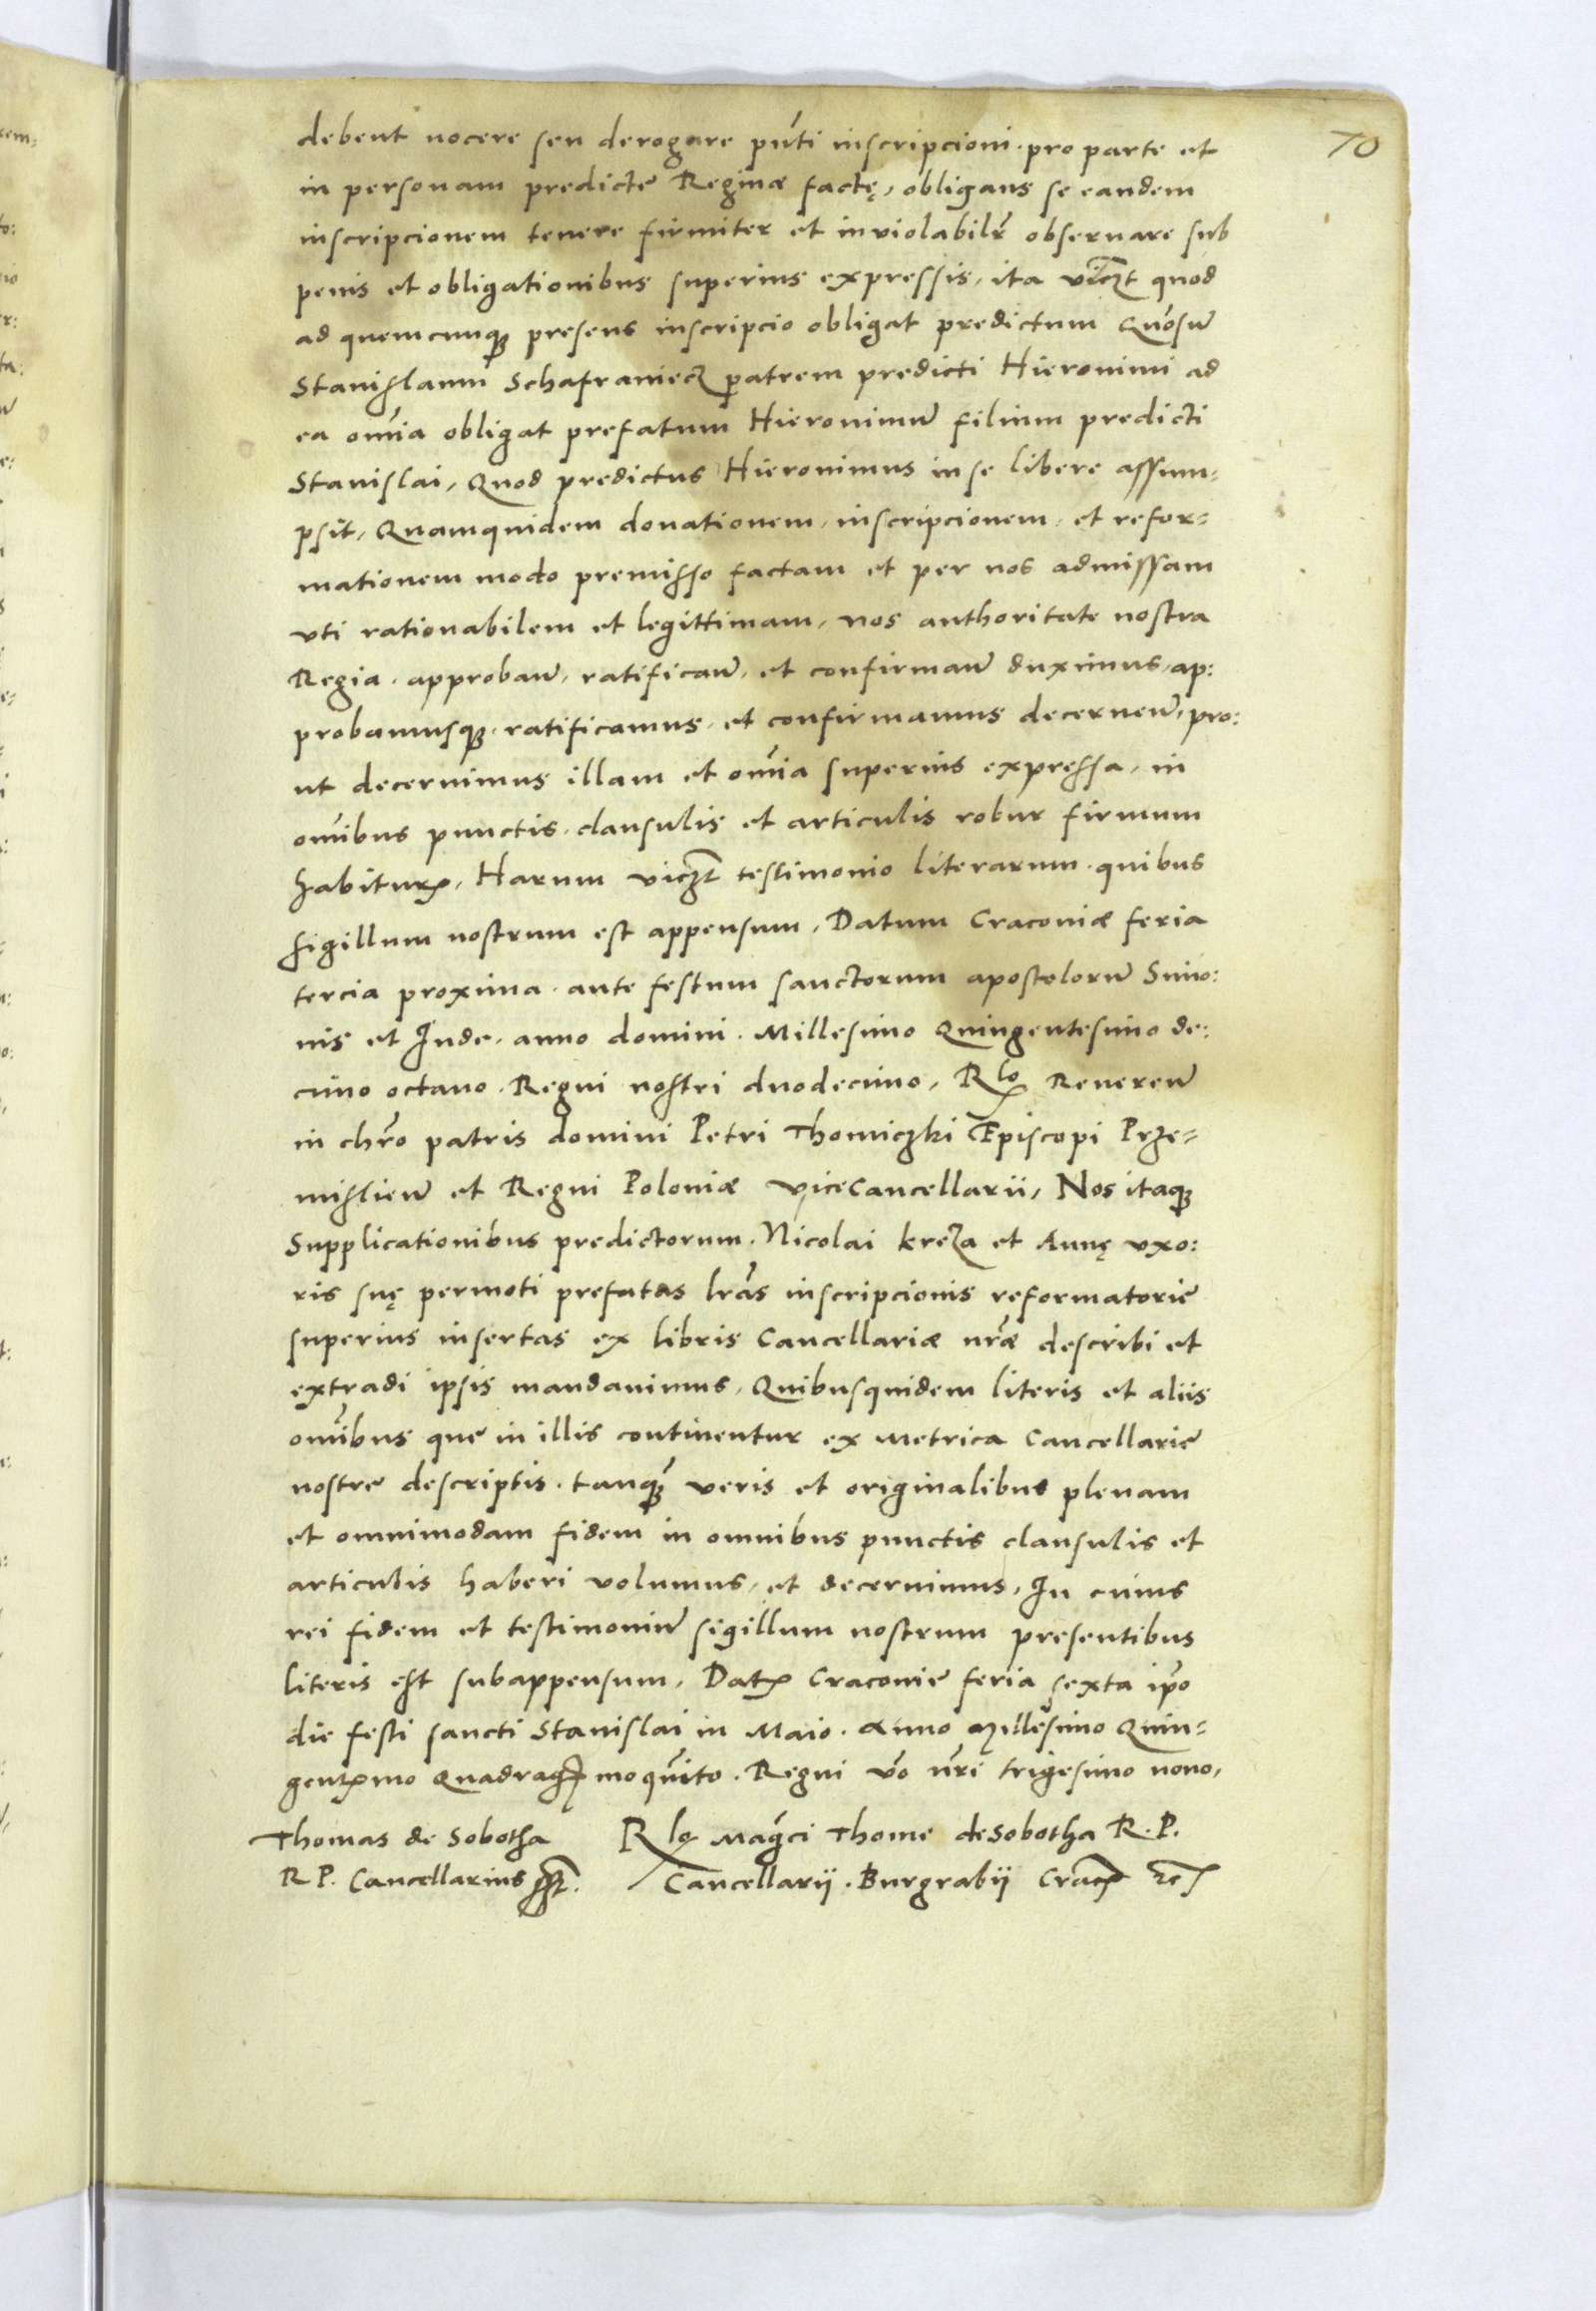 70
debent nocere seu derogare pñti inscripcioni · pro parte et
in personam predicte Reginæ factę, obligans se eandem
inscripcionem tenere firmiter et inviolabilr̃ obseruare sub
penis et obligationibus superius expressis, ita vicꝫt quod
ad quemcunqꝫ presens inscripcio obligat predictum Gñosũ
Stanislaum Schafraniecz patrem predicti Hieronimi ad
ea oĩa obligat prefatum Hieronimũ filium predicti
Stanislai, Quod predictus Hieronimus in se libere assum-
psit, Quamquidem donationem, inscripcionem, et refor-
mationem modo premisso factam et per nos admissam
vti rationabilem et legittimam, nos authoritate nostra
Regia · approbañ, ratificañ, et confirmañ duximus, ap:
probamusqꝫ, ratificamus, et confirmamus decerneñ, pro:
ut decernimus illam et oĩa superius expressa, in
oĩbus punctis, clausulis et articulis robur firmum
habituꝝ, Harum vicꝫt testimonio literarum · quibus
sigillum nostrum est appensum, Datum Cracoviæ feria
tercia proxima · ante festum sanctorum apostolorũ Simo:
nis et Iude, anno domini · Millesimo Quingentesimo de:
cimo octavo · Regni nostri duodecimo, Rlõ Reuereñ
in chr̃o patris domini Petri Thomiczki Episcopi Prze-
mislieñ et Regni Poloniæ viceCancellarii, Nos itaqꝫ
Supplicationibus predictorum · Nicolai kreza et Annę vxo:
ris suę permoti prefatas lr̃as inscripcionis reformatorie
superius insertas ex libris Cancellariæ nr̃æ describi et
extradi ipsis mandauimus, Quibusquidem literis et aliis
oĩbus que in illis continentur ex Metrica Cancellarie
nostre descriptis · tanqꝫ̃ veris et originalibus plenam
et omnimodam fidem in omnibus punctis clausulis et
articulis haberi volumus, et decernimus, In cuius
rei fidem et testimoniũ sigillum nostrum presentibus
literis est subappensum, Datꝝ Cracovie feria sexta ip̃o
die festi sancti Stanislai in Maio · Anno Millesimo Quin-
gentꝝmo Quadragꝝmoquĩto · Regni võ nr̃i trigesimo nono,
Thomas de Sobotha
R P. Cancellarius sszt.
Rlõ Mag̃ci Thome de Sobotha R. P.
Cancellarij · Burgrabij Cracꝝ ꝛc̃